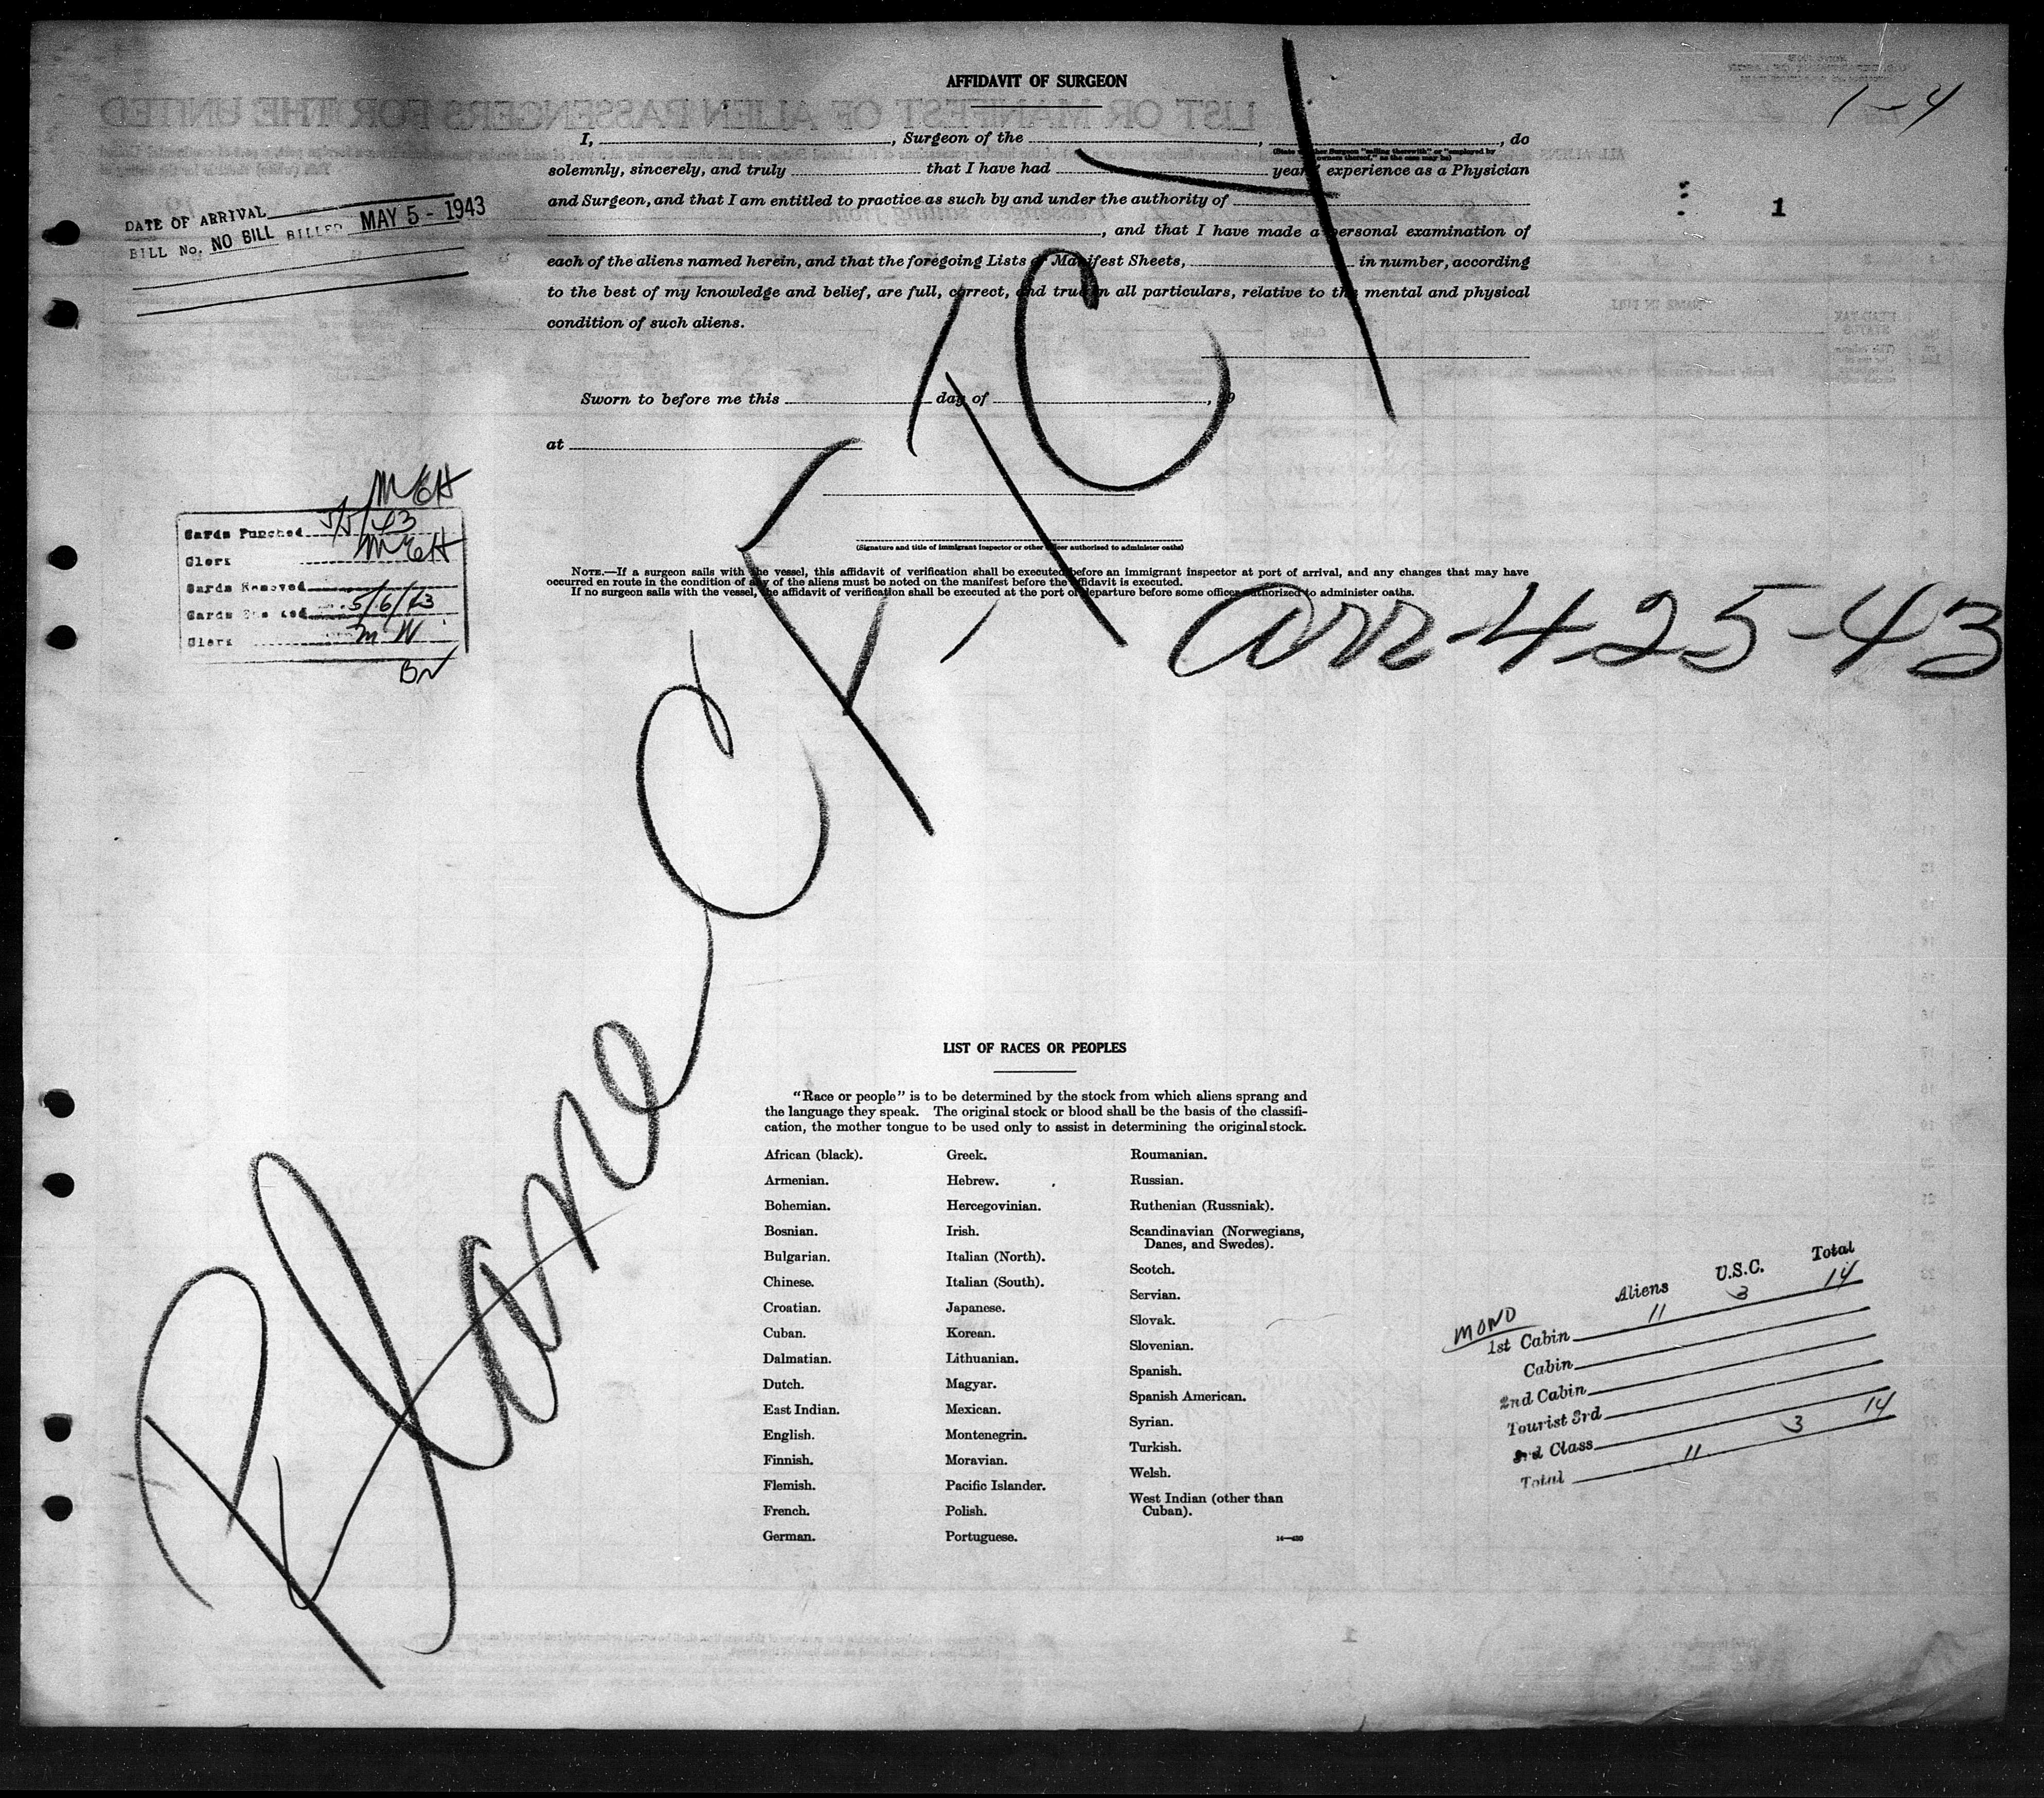 AFFIDAVIT OF SURGEON
1-4
I, , Surgeon of the , , do
(State whether Surgeon "sailing therewith" or "employed by owners thereof," as the case may be)
solemnly, sincerely, and truly that I have had years' experience as a Physician
and Surgeon, and that I am entitled to practice as such by and under the authority of
, and that I have made a personal examination of
each of the aliens named herein, and that the foregoing Lists or Manifest Sheets, in number, according
to the best of my knowledge and belief, are full, correct, and true in all particulars, relative to the mental and physical
condition of such aliens.
1
DATE OF ARRIVAL
BILL No. NO BILL BILLED MAY 5 - 1943
Sworn to before me this day of , 19
at
(Signature and title of immigrant inspector or other officer authorized to administer oaths)
NOTE.—If a surgeon sails with the vessel, this affidavit of verification shall be executed before an immigrant inspector at port of arrival, and any changes that may have
occurred en route in the condition of any of the aliens must be noted on the manifest before the affidavit is executed.
If no surgeon sails with the vessel, the affidavit of verification shall be executed at the port of departure before some officer authorized to administer oaths.
Cards Punched 5/5/43
Clerk
Cards Removed
Cards 5/6/43
Clerk MW
BW
Plane
arr-4-25-43
LIST OF RACES OR PEOPLES
"Race or people" is to be determined by the stock from which aliens sprang and
the language they speak. The original stock or blood shall be the basis of the classifi-
cation, the mother tongue to be used only to assist in determining the original stock.
African (black).
Armenian.
Bohemian.
Bosnian.
Bulgarian.
Chinese.
Croatian.
Cuban.
Dalmatian.
Dutch.
East Indian.
English.
Finnish.
Flemish.
French.
German.
Greek.
Hebrew.
Hercegovinian.
Irish.
Italian (North).
Italian (South).
Japanese.
Korean.
Lithuanian.
Magyar.
Mexican.
Montenegrin.
Moravian.
Pacific Islander.
Polish.
Portuguese.
Roumanian.
Russian.
Ruthenian (Russniak).
Scandinavian (Norwegians,
Danes, and Swedes).
Scotch.
Servian.
Slovak.
Slovenian.
Spanish.
Spanish American.
Syrian.
Turkish.
Welsh.
West Indian (other than
Cuban).
14—430
Aliens U.S.C. Total
MONO
1st Cabin 11 3 14
Cabin
2nd Cabin
Tourist 3rd
3rd Class
Total 11 3 14